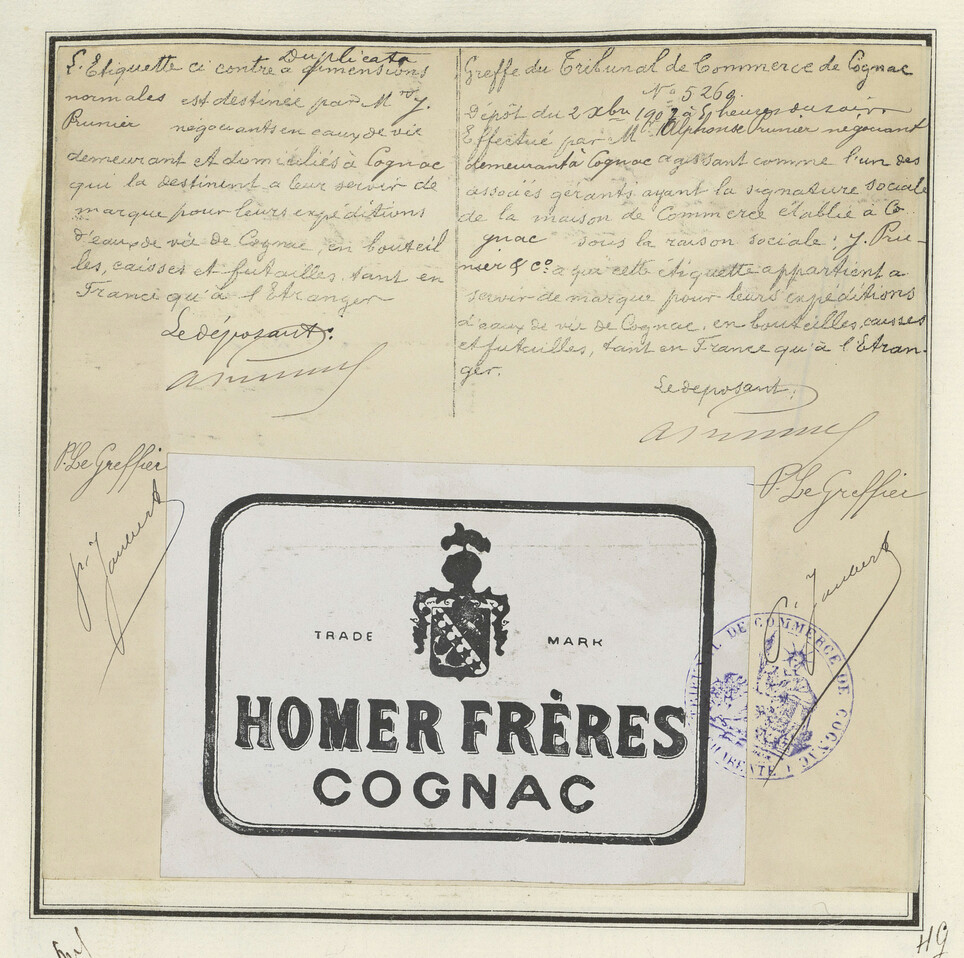 Duplicata
L'Etiquette ci contre a dimensions
normales est destinée par MM J.
Prunier négociants en eaux de vie
demeurant et domiciliés à Cognac
qui la destinent a leur servir de
marque pour leurs expéditions
d'eaux de vie de Cognac, en bouteil
les, caisses et futailles, tant en
France qu'à l'Etranger
Le déposant:
P. Le Greffier
Greffe du Tribunal de Commerce de Cognac
No 5260
Dépôt du 2 Xbre 1907 à 5 heures du soir
Effectué par M. Alphonse Prunier négociant
demeurant à Cognac agissant comme l'un des
associés gérants ayant la signature sociale
de la maison de Commerce établie à Co
gnac sous la raison sociale: J. Pru-
nier & Co a qui cette étiquette appartient a
servir de marque pour leurs expéditions
d'eaux de vie de Cognac, en bouteilles, caisses
et futailles, tant en France qu'à l'Etran-
ger.
Le deposant:
P. Le Greffier
TRADE MARK
HOMER FRÈRES
COGNAC
TRIBUNAL DE COMMERCE DE COGNAC
CHARENTE